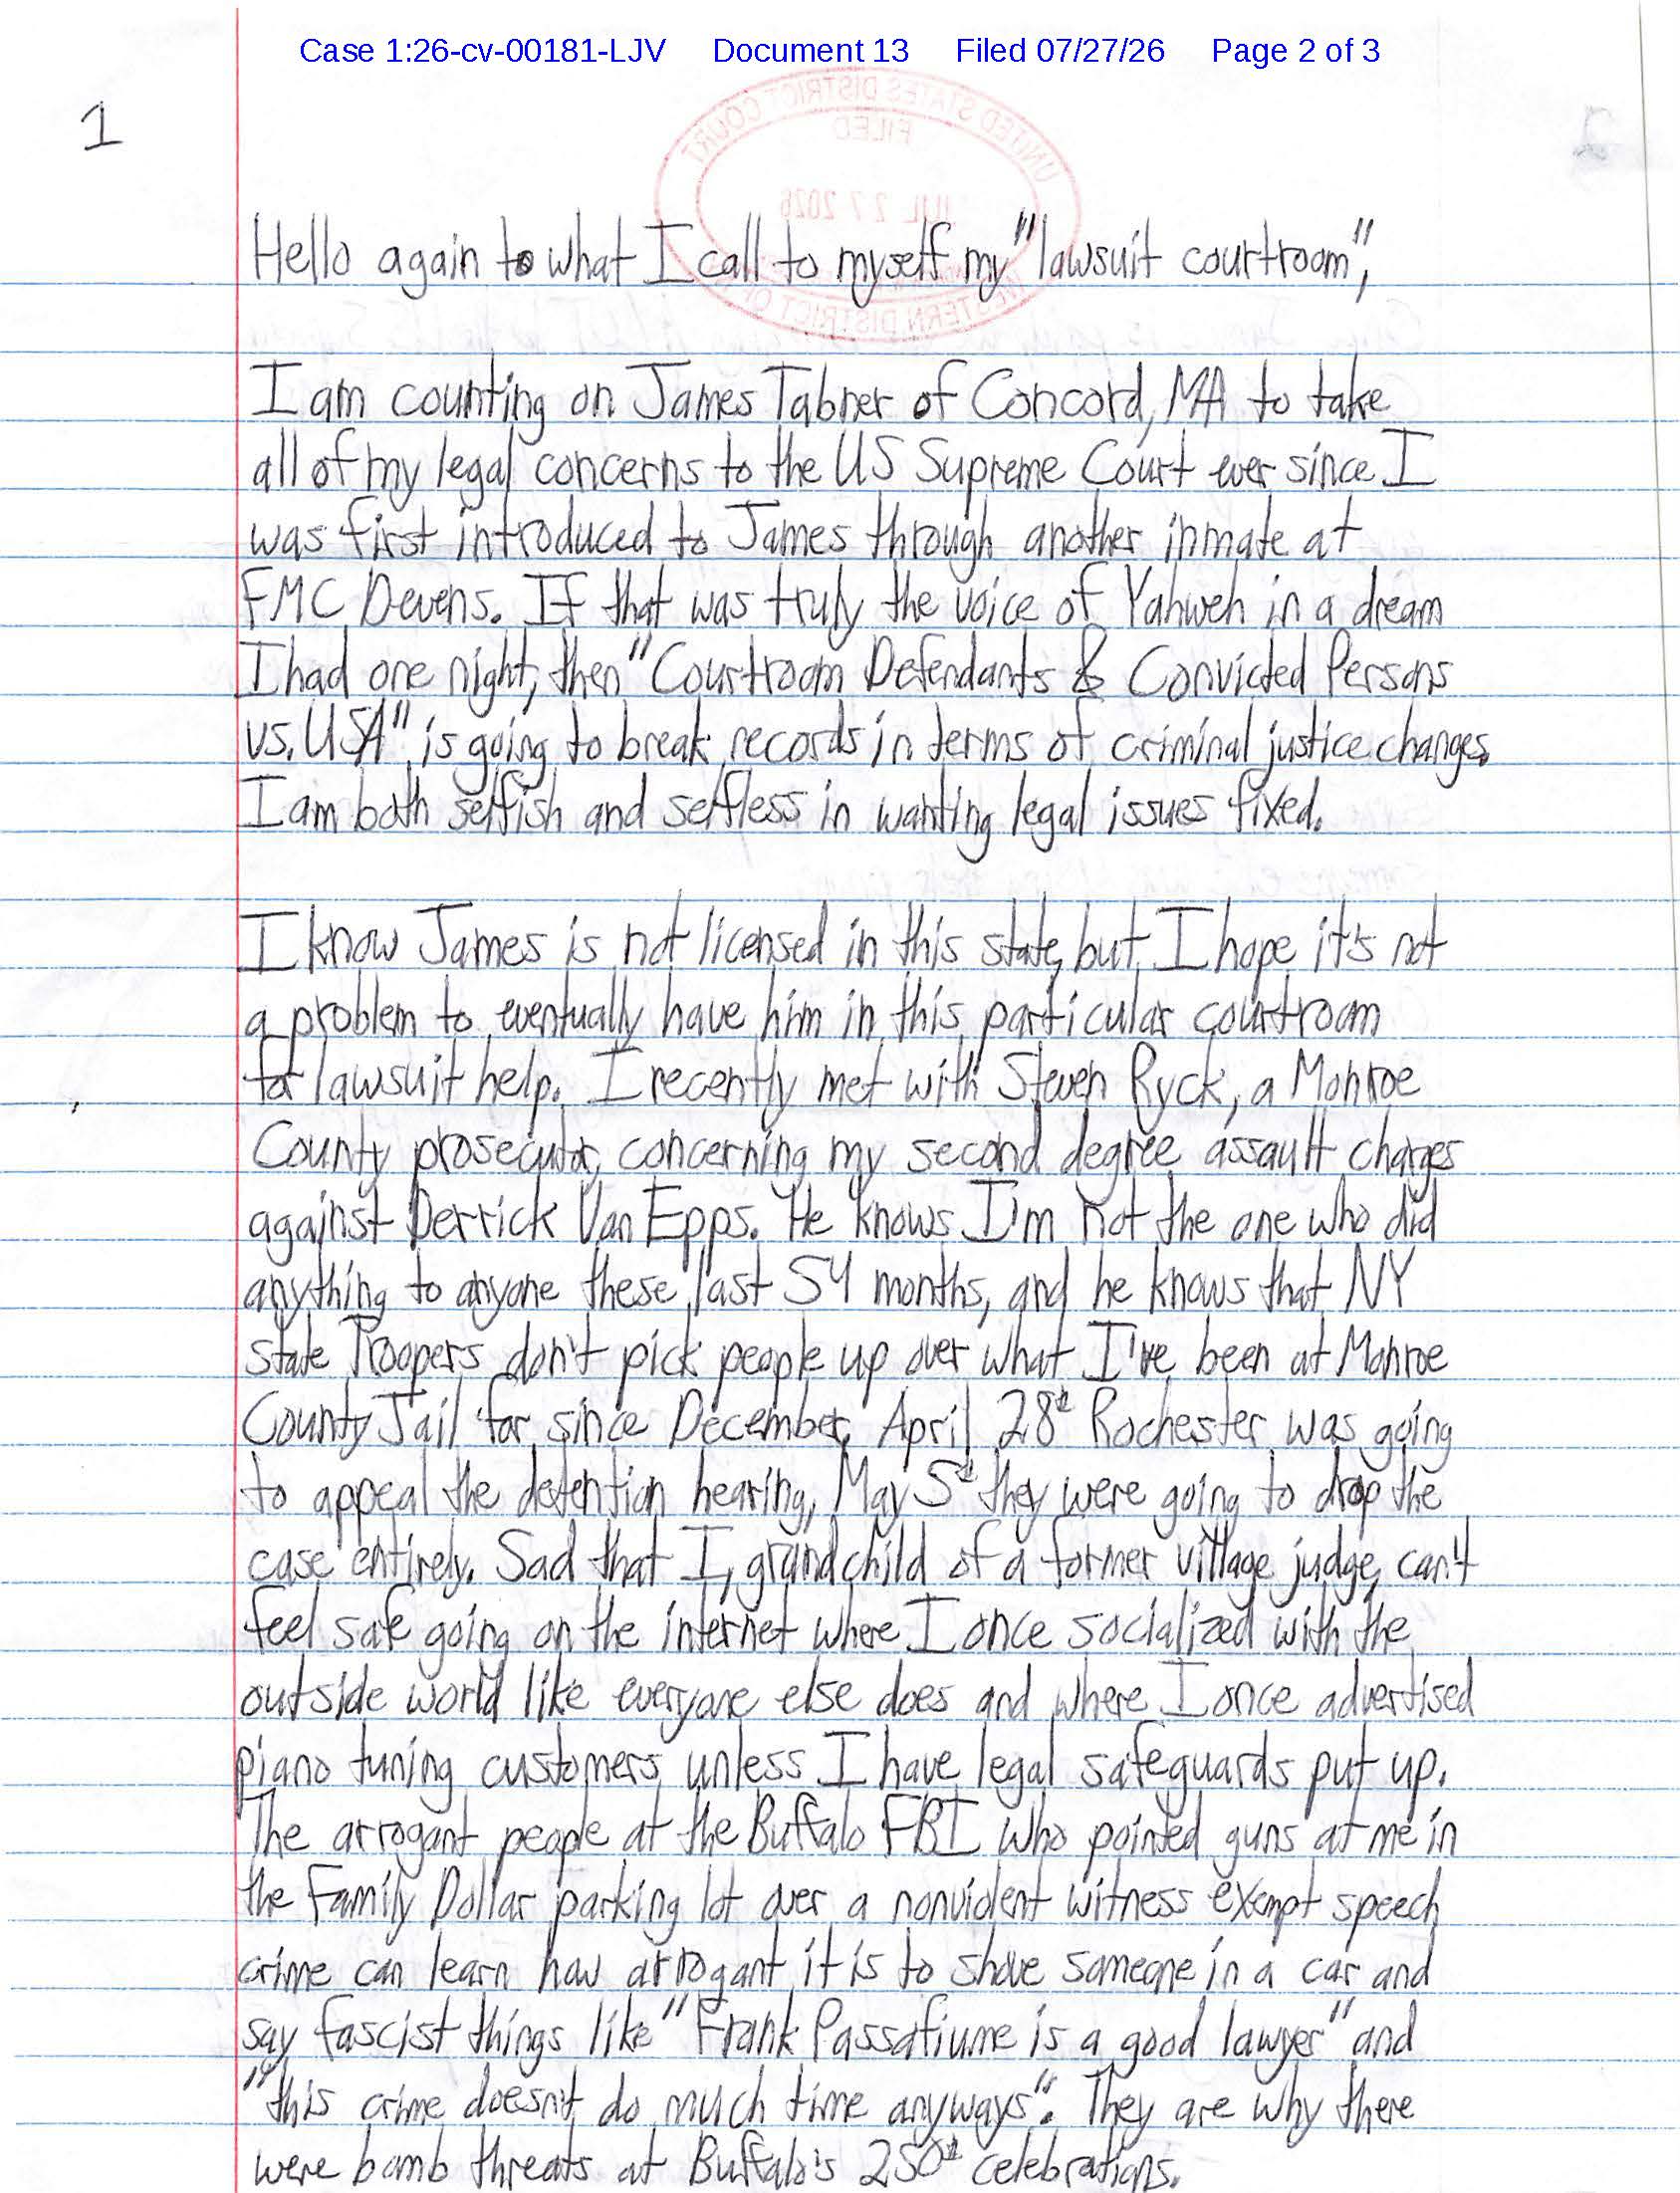 Case 1:26-cv-00181-LJV Document 13 Filed 07/27/26 Page 2 of 3
UNITED STATES DISTRICT COURT
FILED
JUL 27 2026
WESTERN DISTRICT OF
1
2
Hello again to what I call to myself my "lawsuit courtroom",
I am counting on James Tabner of Concord, MA to take
all of my legal concerns to the US Supreme Court ever since I
was first introduced to James through another inmate at
FMC Devens. If that was truly the voice of Yahweh in a dream
I had one night, then "Courtroom Defendants & Convicted Persons
vs. USA" is going to break records in terms of criminal justice changes.
I am both selfish and selfless in wanting legal issues fixed.
I know James is not licensed in this state, but I hope it's not
a problem to eventually have him in this particular courtroom
for lawsuit help. I recently met with Steven Ryck, a Monroe
County prosecutor, concerning my second degree assault charges
against Derrick Van Epps. He knows I'm not the one who did
anything to anyone these last 54 months, and he knows that NY
State Troopers don't pick people up over what I've been at Monroe
County Jail for since December. April 28th Rochester was going
to appeal the detention hearing, May 5th they were going to drop the
case entirely. Sad that I, grandchild of a former village judge, can't
feel safe going on the internet where I once socialized with the
outside world like everyone else does and where I once advertised
piano tuning customers unless I have legal safeguards put up.
The arrogant people at the Buffalo FBI who pointed guns at me in
the Family Dollar parking lot over a nonviolent witness exempt speech
crime can learn how arrogant it is to shove someone in a car and
say fascist things like "Frank Passafiume is a good lawyer" and
"this crime doesn't do much time anyways". They are why there
were bomb threats at Buffalo's 250th celebrations.